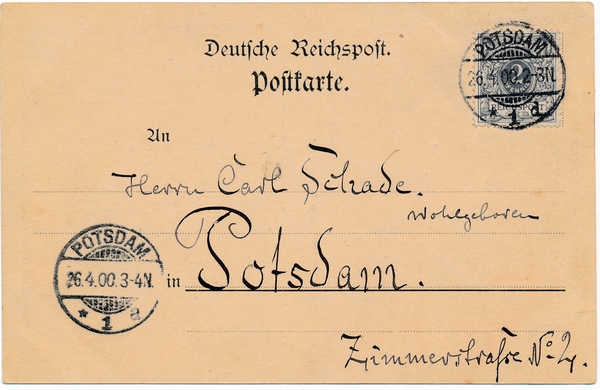 Deutsche Reichspost.
Postkarte.
POTSDAM
26.4.00.2-3N.
* 1 d
REICHSPOST
An
Herrn Carl Schade.
Wohlgeboren
POTSDAM
26.4.00.3-4N.
* 1 a
in Potsdam.
Zimmerstraße No. 2.